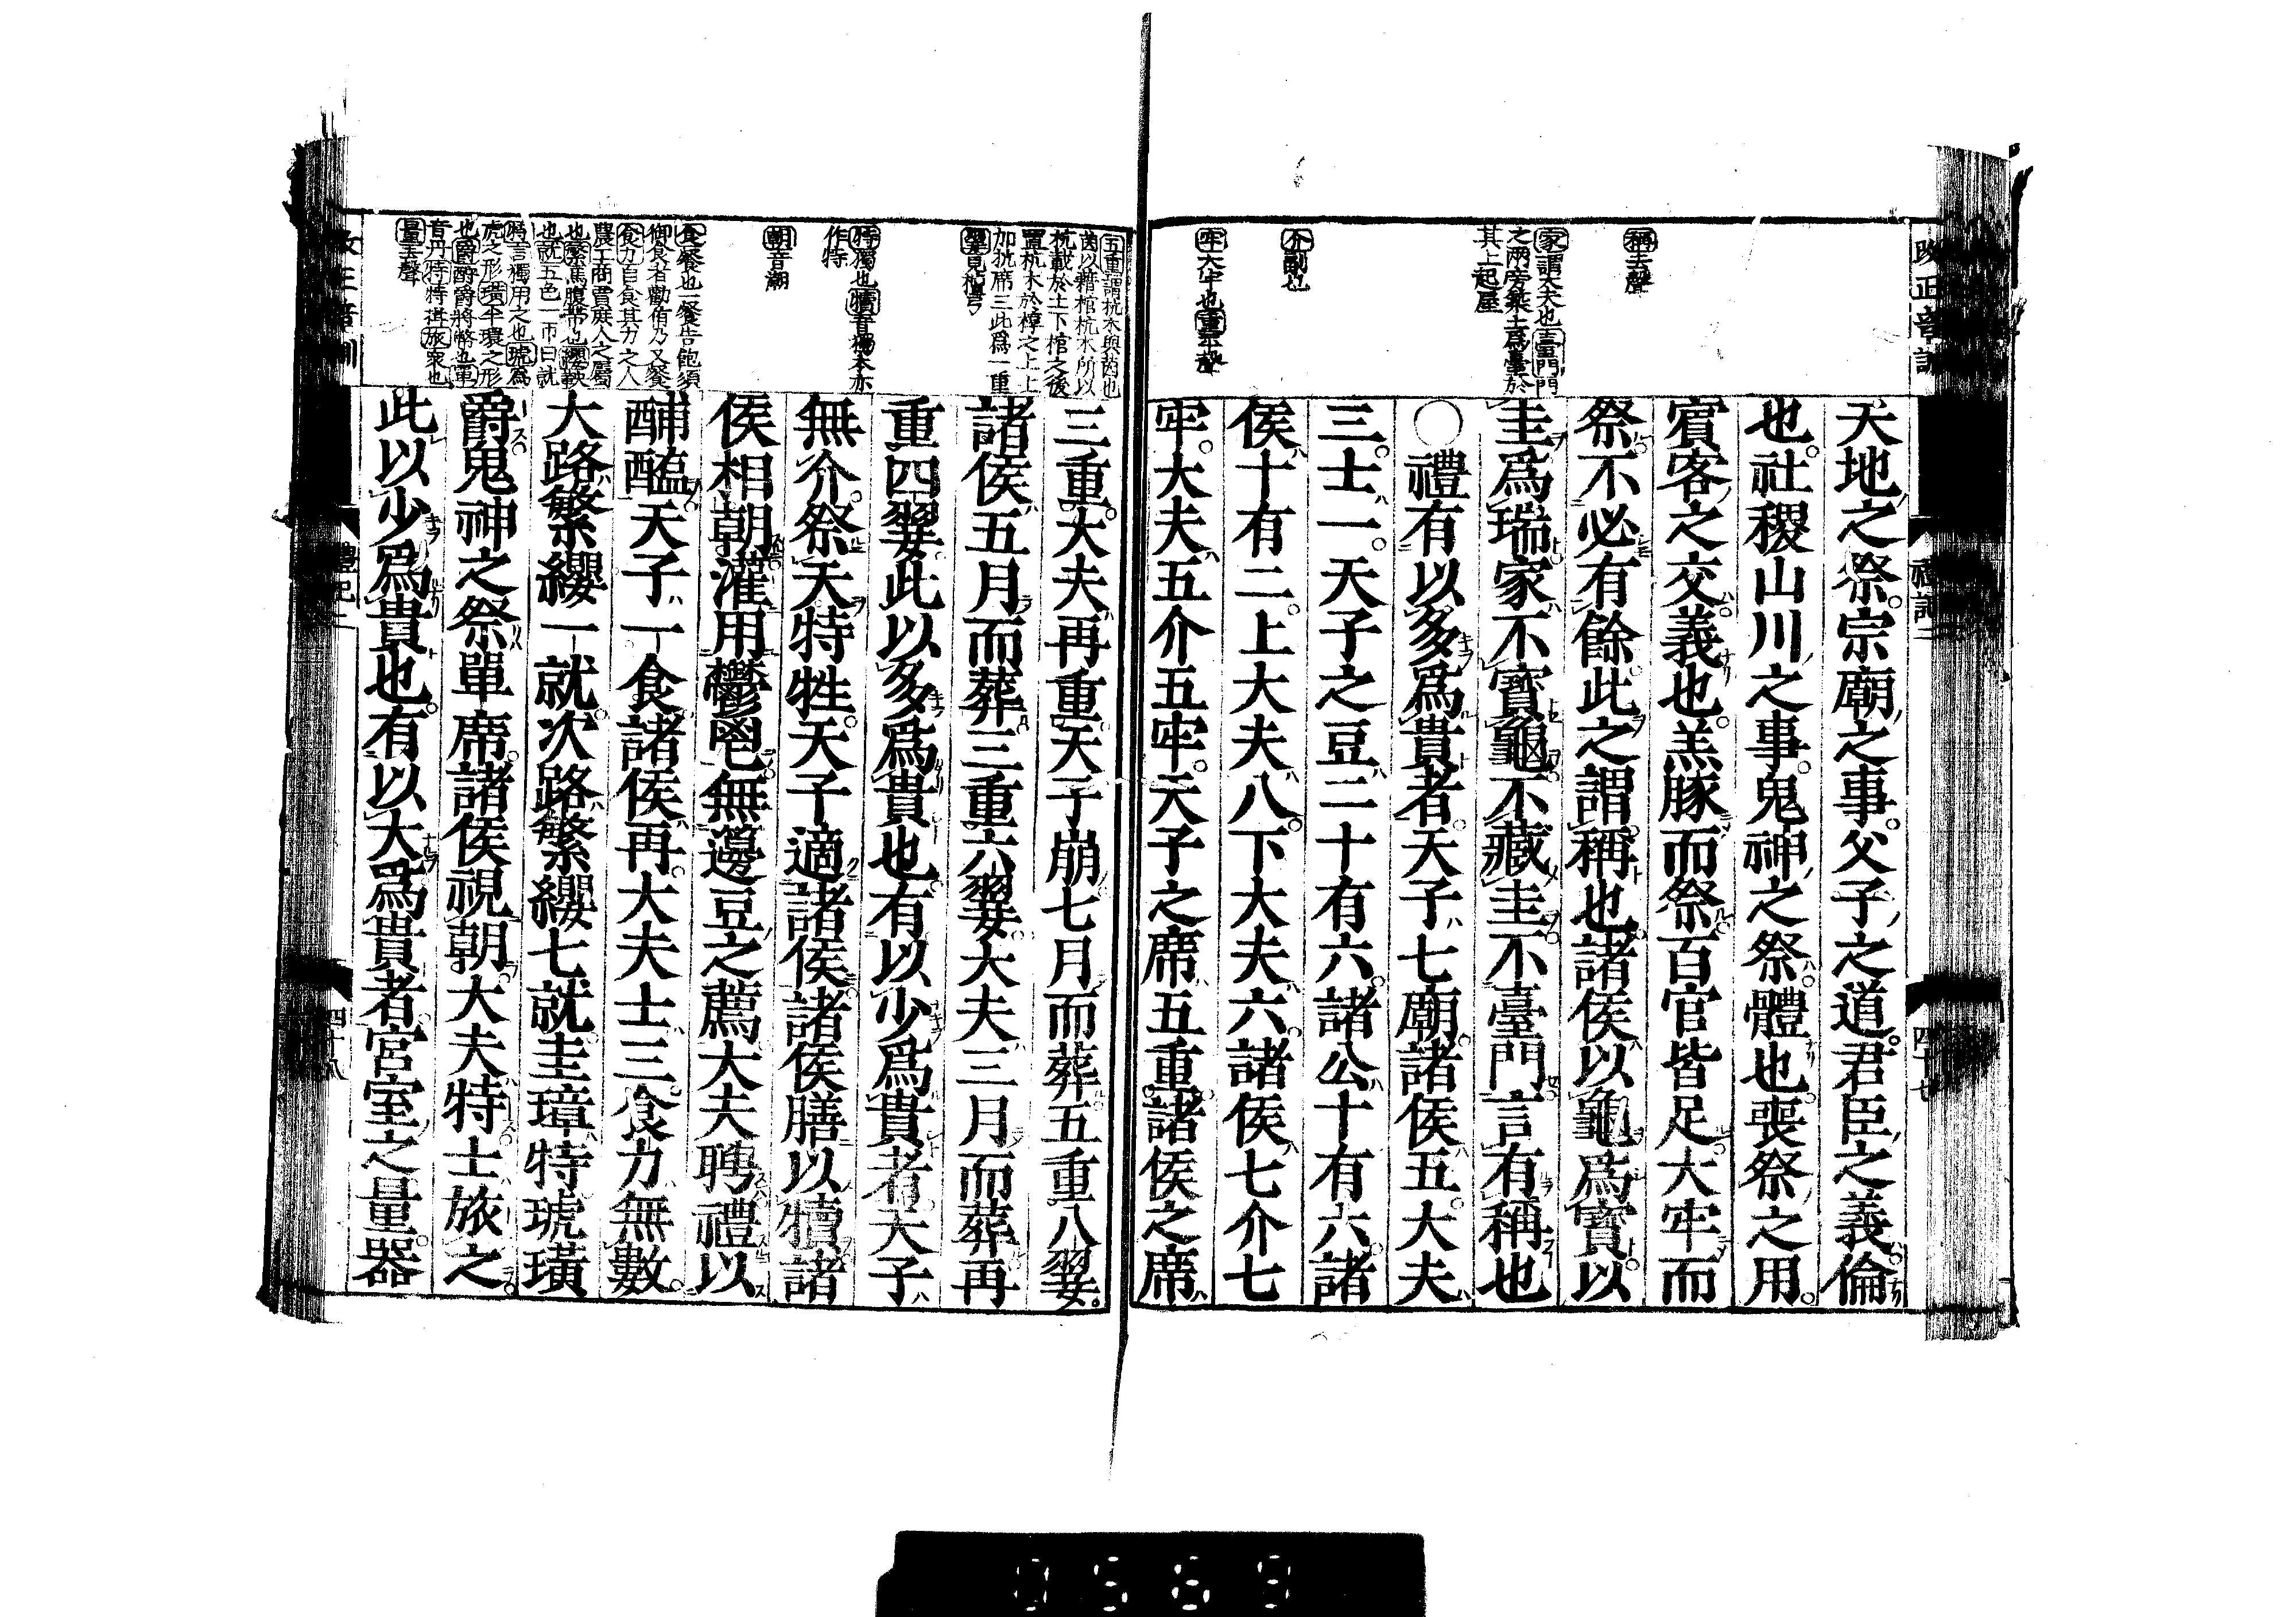 改正音訓
禮記二
四十七
稱去聲
家謂大夫也臺門門
之兩旁築土爲臺於
其上起屋
介副也
牢大牢也重平聲
天地之祭宗廟之事父子之道君臣之義倫
也社稷山川之事鬼神之祭體也喪祭之用
賓客之交義也羔豚而祭百官皆足大牢而
祭不必有餘此之謂稱也諸侯以龜爲寶以
圭爲瑞家不寶龜不藏圭不臺門言有稱也
○禮有以多爲貴者天子七廟諸侯五大夫
三士一天子之豆二十有六諸公十有六諸
侯十有二上大夫八下大夫六諸侯七介七
牢大夫五介五牢天子之席五重諸侯之席
五重謂杭木與茵也
茵以藉棺杭木所以
杭載於土下棺之後
置杭木於椁之上上
加杭席三此爲一重
翣見檀弓
特獨也犢音獨本亦
作特
朝音潮
食餐也一餐告飽須
御食者勸侑乃又餐
食力自食其力之人
農工商賈庶人之屬
也繁馬腹帶也纓鞅
也就五色一帀曰就
特言獨用之也琥爲
虎之形璜半環之形
也爵酬爵將幣也單
音丹特特揖旅衆也
量去聲
三重大夫再重天子崩七月而葬五重八翣
諸侯五月而葬三重六翣大夫三月而葬再
重四翣此以多爲貴也有以少爲貴者天子
無介祭天特牲天子適諸侯諸侯膳以犢諸
侯相朝灌用鬱鬯無籩豆之薦大夫聘禮以
脯醢天子一食諸侯再大夫士三食力無數
大路繁纓一就次路繁纓七就圭璋特琥璜
爵鬼神之祭單席諸侯視朝大夫特士旅之
此以少爲貴也有以大爲貴者宮室之量器
改正音訓
禮記二
四十八
0569